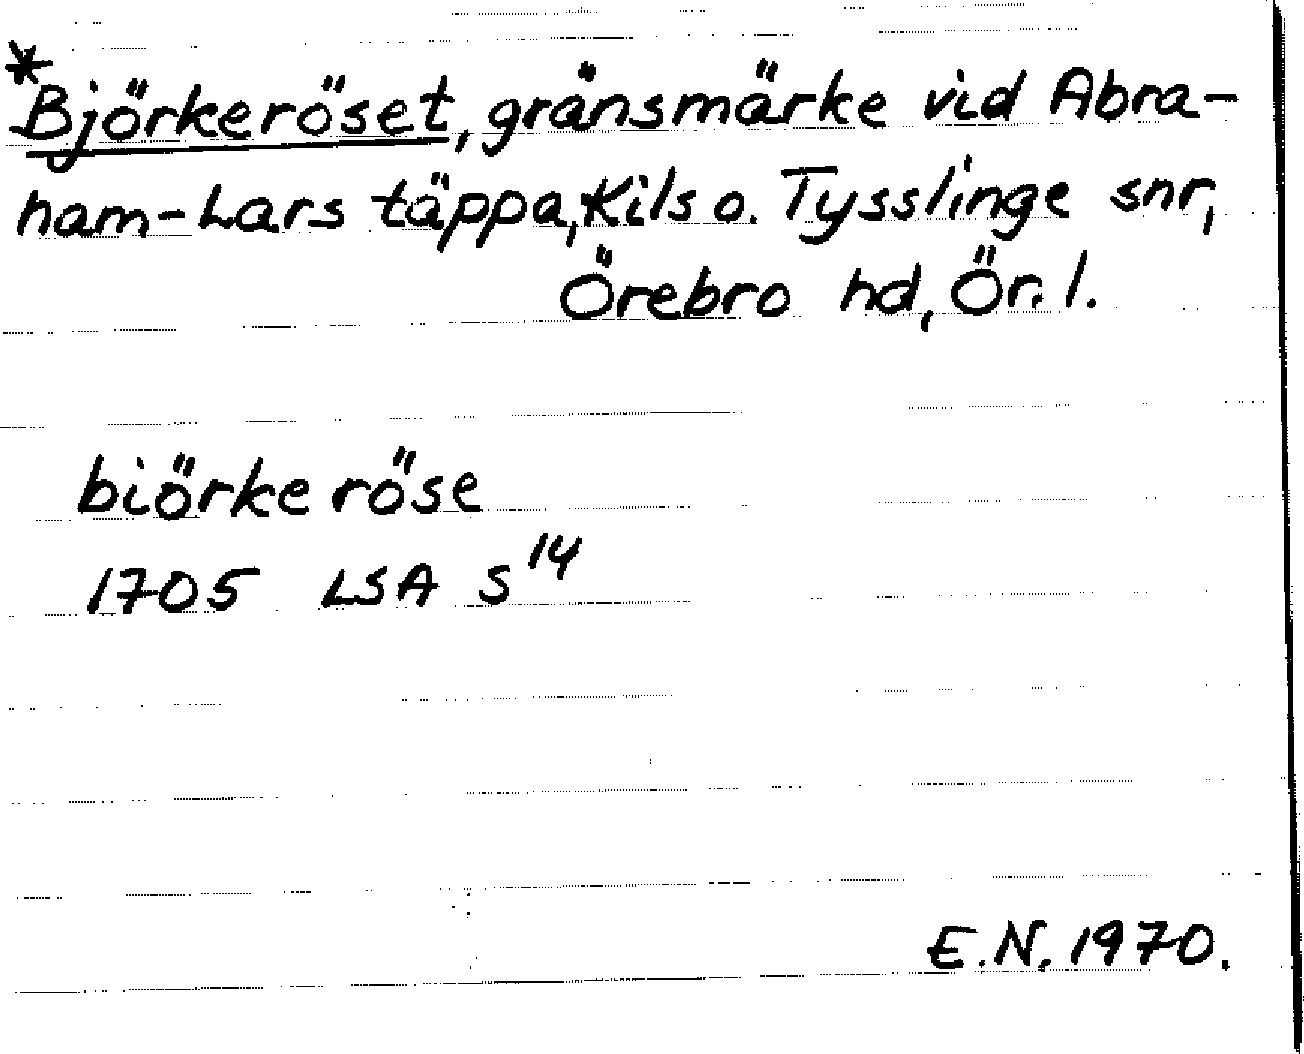 *Björkeröset, gränsmärke vid Abra-
ham-Lars täppa, Kils o. Tysslinge snr,
Örebro hd, Ör. l.
biörke röse
1705 LSA S 14
E.N. 1970.